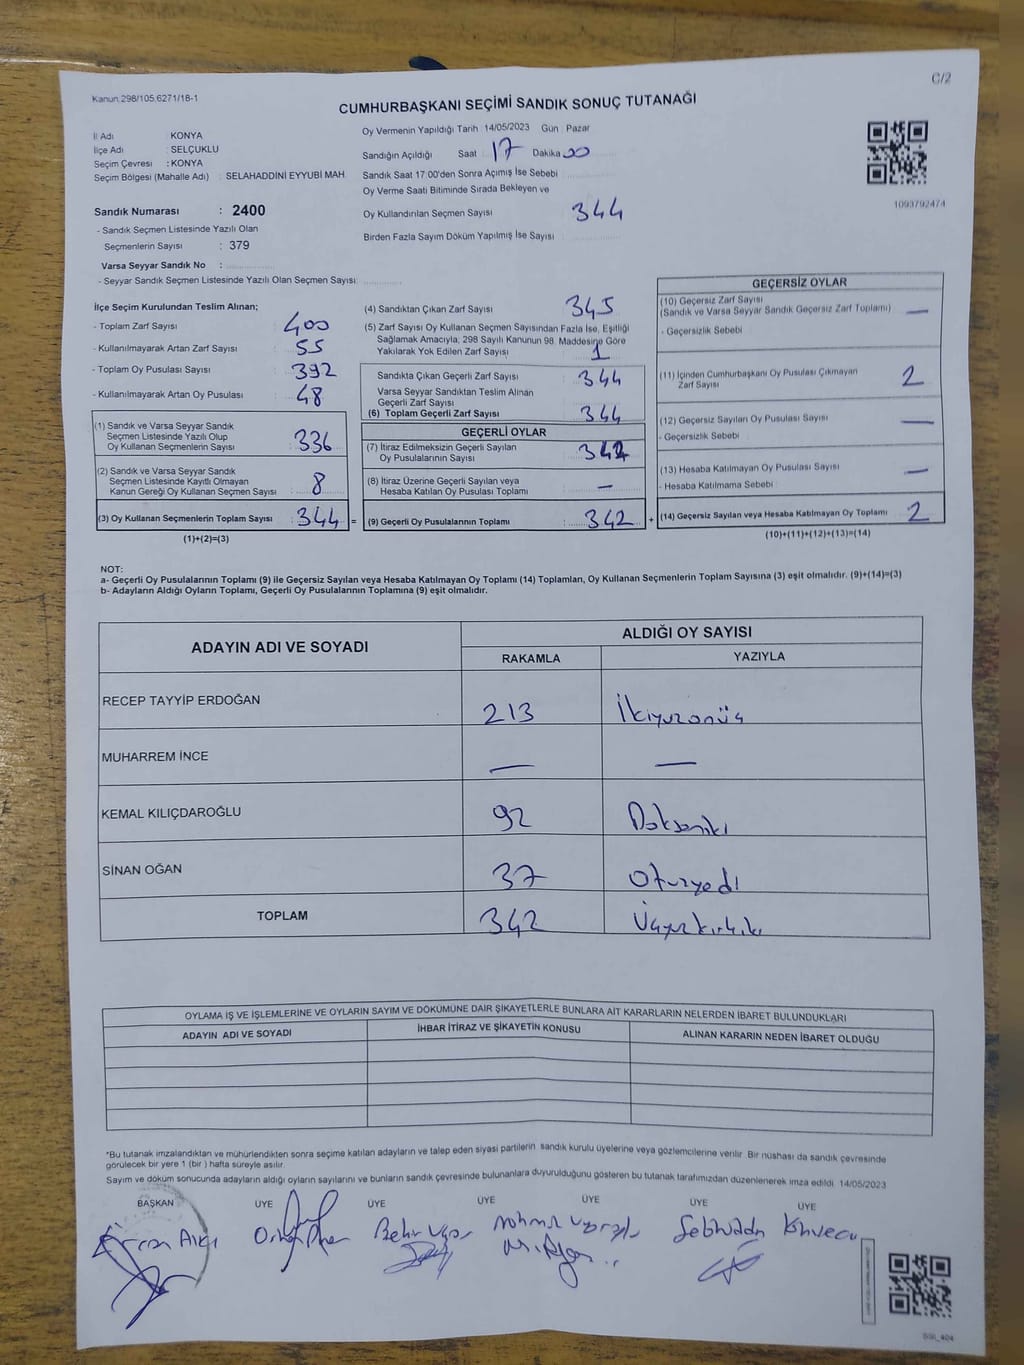 C/2
Kanun 298/105,6271/18-1
CUMHURBAŞKANI SEÇİMİ SANDIK SONUÇ TUTANAĞI
İl Adı : KONYA
İlçe Adı : SELÇUKLU
Seçim Çevresi : KONYA
Seçim Bölgesi (Mahalle Adı) : SELAHADDİNİ EYYUBİ MAH.
Oy Vermenin Yapıldığı Tarih 14/05/2023 Gün : Pazar
Sandığın Açıldığı Saat : 17 Dakika 00
Sandık Saat 17:00'den Sonra Açımış İse Sebebi
Oy Verme Saati Bitiminde Sırada Bekleyen ve
Oy Kullandırılan Seçmen Sayısı : 344
Birden Fazla Sayım Döküm Yapılmış İse Sayısı
1093792474
Sandık Numarası : 2400
- Sandık Seçmen Listesinde Yazılı Olan
Seçmenlerin Sayısı : 379
Varsa Seyyar Sandık No :
- Seyyar Sandık Seçmen Listesinde Yazılı Olan Seçmen Sayısı:
İlçe Seçim Kurulundan Teslim Alınan;
- Toplam Zarf Sayısı : 400
- Kullanılmayarak Artan Zarf Sayısı : 55
- Toplam Oy Pusulası Sayısı : 392
- Kullanılmayarak Artan Oy Pusulası : 48
(1) Sandık ve Varsa Seyyar Sandık
Seçmen Listesinde Yazılı Olup
Oy Kullanan Seçmenlerin Sayısı : 336
(2) Sandık ve Varsa Seyyar Sandık
Seçmen Listesinde Kayıtlı Olmayan
Kanun Gereği Oy Kullanan Seçmen Sayısı : 8
(3) Oy Kullanan Seçmenlerin Toplam Sayısı : 344 =
(1)+(2)=(3)
(4) Sandıktan Çıkan Zarf Sayısı : 345
(5) Zarf Sayısı Oy Kullanan Seçmen Sayısından Fazla İse, Eşitliği
Sağlamak Amacıyla; 298 Sayılı Kanunun 98. Maddesine Göre
Yakılarak Yok Edilen Zarf Sayısı : 1
Sandıkta Çıkan Geçerli Zarf Sayısı : 344
Varsa Seyyar Sandıktan Teslim Alınan
Geçerli Zarf Sayısı
(6) Toplam Geçerli Zarf Sayısı : 344
GEÇERLİ OYLAR
(7) İtiraz Edilmeksizin Geçerli Sayılan
Oy Pusulalarının Sayısı : 342
(8) İtiraz Üzerine Geçerli Sayılan veya
Hesaba Katılan Oy Pusulası Toplamı : —
(9) Geçerli Oy Pusulalarının Toplamı : 342 +
GEÇERSİZ OYLAR
(10) Geçersiz Zarf Sayısı
(Sandık ve Varsa Seyyar Sandık Geçersiz Zarf Toplamı) : —
- Geçersizlik Sebebi
(11) İçinden Cumhurbaşkanı Oy Pusulası Çıkmayan
Zarf Sayısı : 2
(12) Geçersiz Sayılan Oy Pusulası Sayısı : —
- Geçersizlik Sebebi
(13) Hesaba Katılmayan Oy Pusulası Sayısı : —
- Hesaba Katılmama Sebebi
(14) Geçersiz Sayılan veya Hesaba Katılmayan Oy Toplamı : 2
(10)+(11)+(12)+(13)=(14)
NOT:
a- Geçerli Oy Pusulalarının Toplamı (9) ile Geçersiz Sayılan veya Hesaba Katılmayan Oy Toplamı (14) Toplamları, Oy Kullanan Seçmenlerin Toplam Sayısına (3) eşit olmalıdır. (9)+(14)=(3)
b- Adayların Aldığı Oyların Toplamı, Geçerli Oy Pusulalarının Toplamına (9) eşit olmalıdır.
ADAYIN ADI VE SOYADI ALDIĞI OY SAYISI
RAKAMLA YAZIYLA
RECEP TAYYİP ERDOĞAN 213 İkiyüzonüç
MUHARREM İNCE — —
KEMAL KILIÇDAROĞLU 92 Doksaniki
SİNAN OĞAN 37 Otuzyedi
TOPLAM 342 Üçyüzkırkiki
OYLAMA İŞ VE İŞLEMLERİNE VE OYLARIN SAYIM VE DÖKÜMÜNE DAİR ŞİKAYETLERLE BUNLARA AİT KARARLARIN NELERDEN İBARET BULUNDUKLARI
ADAYIN ADI VE SOYADI İHBAR İTİRAZ VE ŞİKAYETİN KONUSU ALINAN KARARIN NEDEN İBARET OLDUĞU
*Bu tutanak imzalandıktan ve mühürlendikten sonra seçime katılan adayların ve talep eden siyasi partilerin sandık kurulu üyelerine veya gözlemcilerine verilir. Bir nüshası da sandık çevresinde
görülecek bir yere 1 (bir) hafta süreyle asılır.
Sayım ve döküm sonucunda adayların aldığı oyların sayılarını ve bunların sandık çevresinde bulunanlara duyurulduğunu gösteren bu tutanak tarafımızdan düzenlenerek imza edildi. 14/05/2023
BAŞKAN ÜYE ÜYE ÜYE ÜYE ÜYE ÜYE